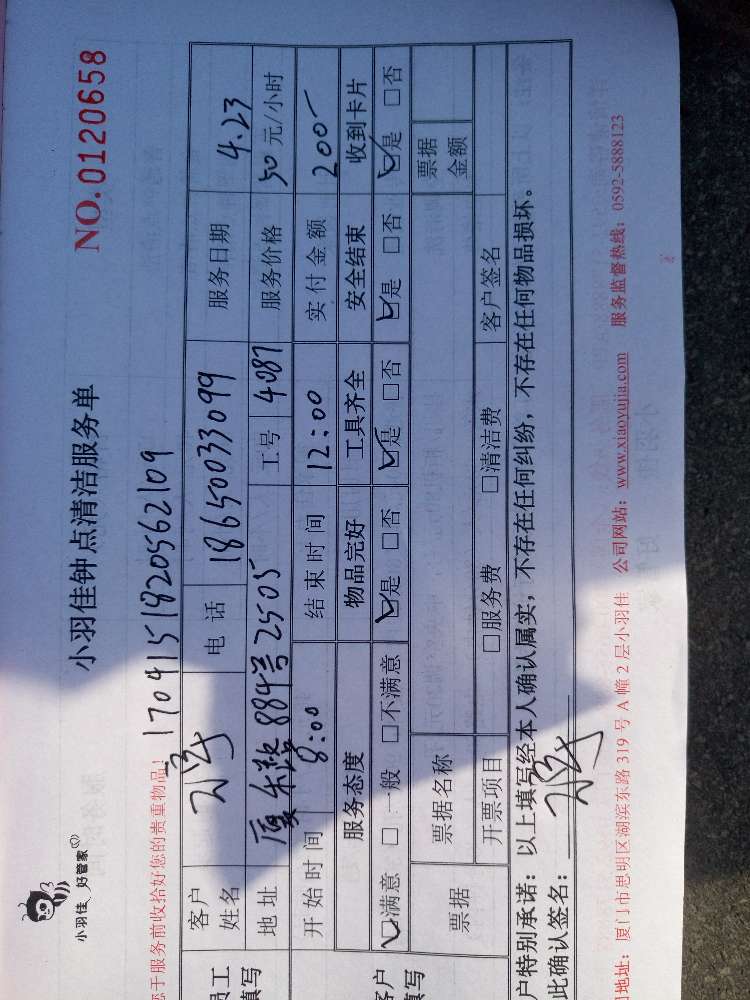 小羽佳 好管家
小羽佳钟点清洁服务单
NO.0120658
于服务前收拾好您的贵重物品!
170415182056 2109
客户姓名 电话 18650033099 服务日期 4.23
地址 厦禾路884号2505 工号 4087 服务价格 50元/小时
开始时间 8:00 结束时间 12:00 实付金额 200-
服务态度 物品完好 工具齐全 安全结束 收到卡片
☑满意 □一般 □不满意 ☑是 □否 ☑是 □否 ☑是 □否 ☑是 □否
票据 票据名称 票据金额
开票项目 □服务费 □清洁费 客户签名
户特别承诺：以上填写经本人确认属实，不存在任何纠纷，不存在任何物品损坏。
此确认签名：
地址：厦门市思明区湖滨东路 319 号 A 幢 2 层小羽佳 公司网站：www.xiaoyujia.com 服务监督热线：0592-5888123
员工
填写
客户
填写